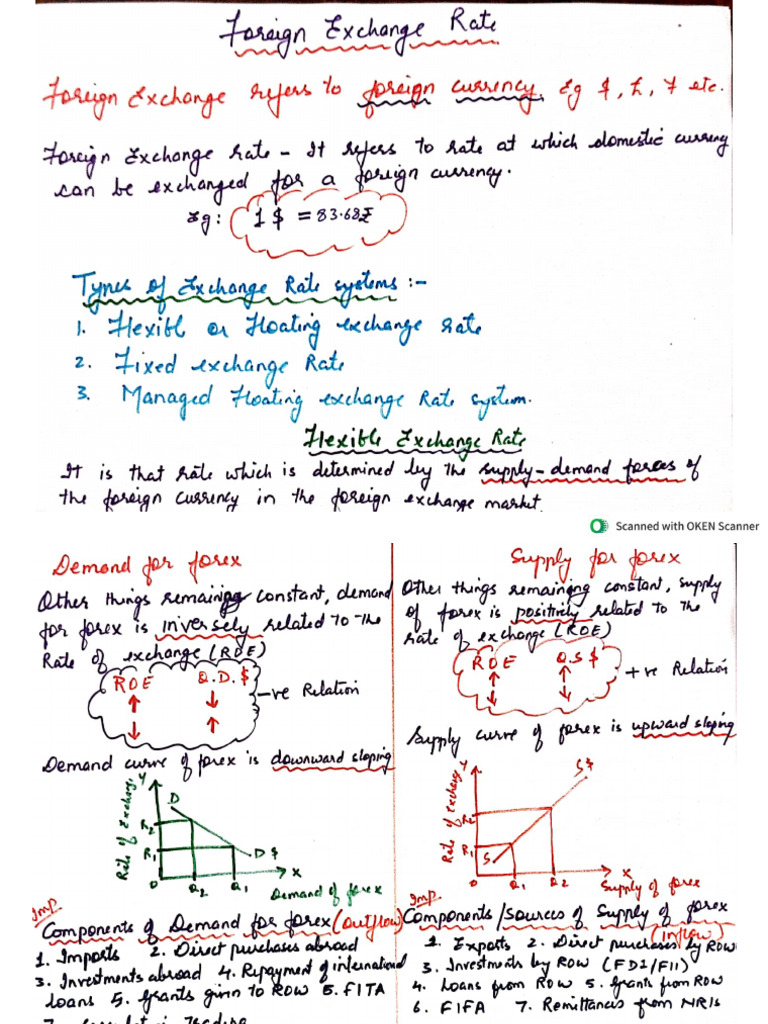 Foreign Exchange Rate
Foreign Exchange refers to foreign currency. Eg $, £, ₹ etc.
Foreign Exchange rate - It refers to rate at which domestic currency
can be exchanged for a foreign currency.
Eg: 1 $ = 83.68₹
Types of Exchange Rate systems :-
1. Flexibl or Floating exchange rate
2. Fixed exchange Rate
3. Managed Floating exchange Rate system.
Flexible Exchange Rate
It is that rate which is determined by the supply-demand forces of
the foreign currency in the foreign exchange market.
Scanned with OKEN Scanner
Demand for forex
Other things remaining constant, demand
for forex is inversely related to the
Rate of exchange (ROE)
ROE Q.D.$
-ve Relation
Demand curve of forex is downward sloping
Y
Rate of Exchang.
D
R2
R1
D$
O Q2 Q1 X
Demand of forex
Imp
Components of Demand for forex (outflow)
1. Imports 2. Direct purchases abroad
3. Investments abroad 4. Repayment of international
loans 5. Grants givn to ROW 5. FITA
Supply for forex
Other things remaining constant, supply
of forex is positively related to the
rate of exchange (ROE)
ROE Q.S $
+ve Relation
Supply curve of forex is upward sloping
Y
Rate of Exchang.
S$
R2
R1
S
O Q1 Q2 X
Supply of forex
Imp
Components/sources of Supply of forex
(inflow)
1. Exports 2. Direct purchases by ROW
3. Investments by ROW (FDI/FII)
4. Loans from ROW 5. Grants from ROW
6. FIFA 7. Remittances from NRIs